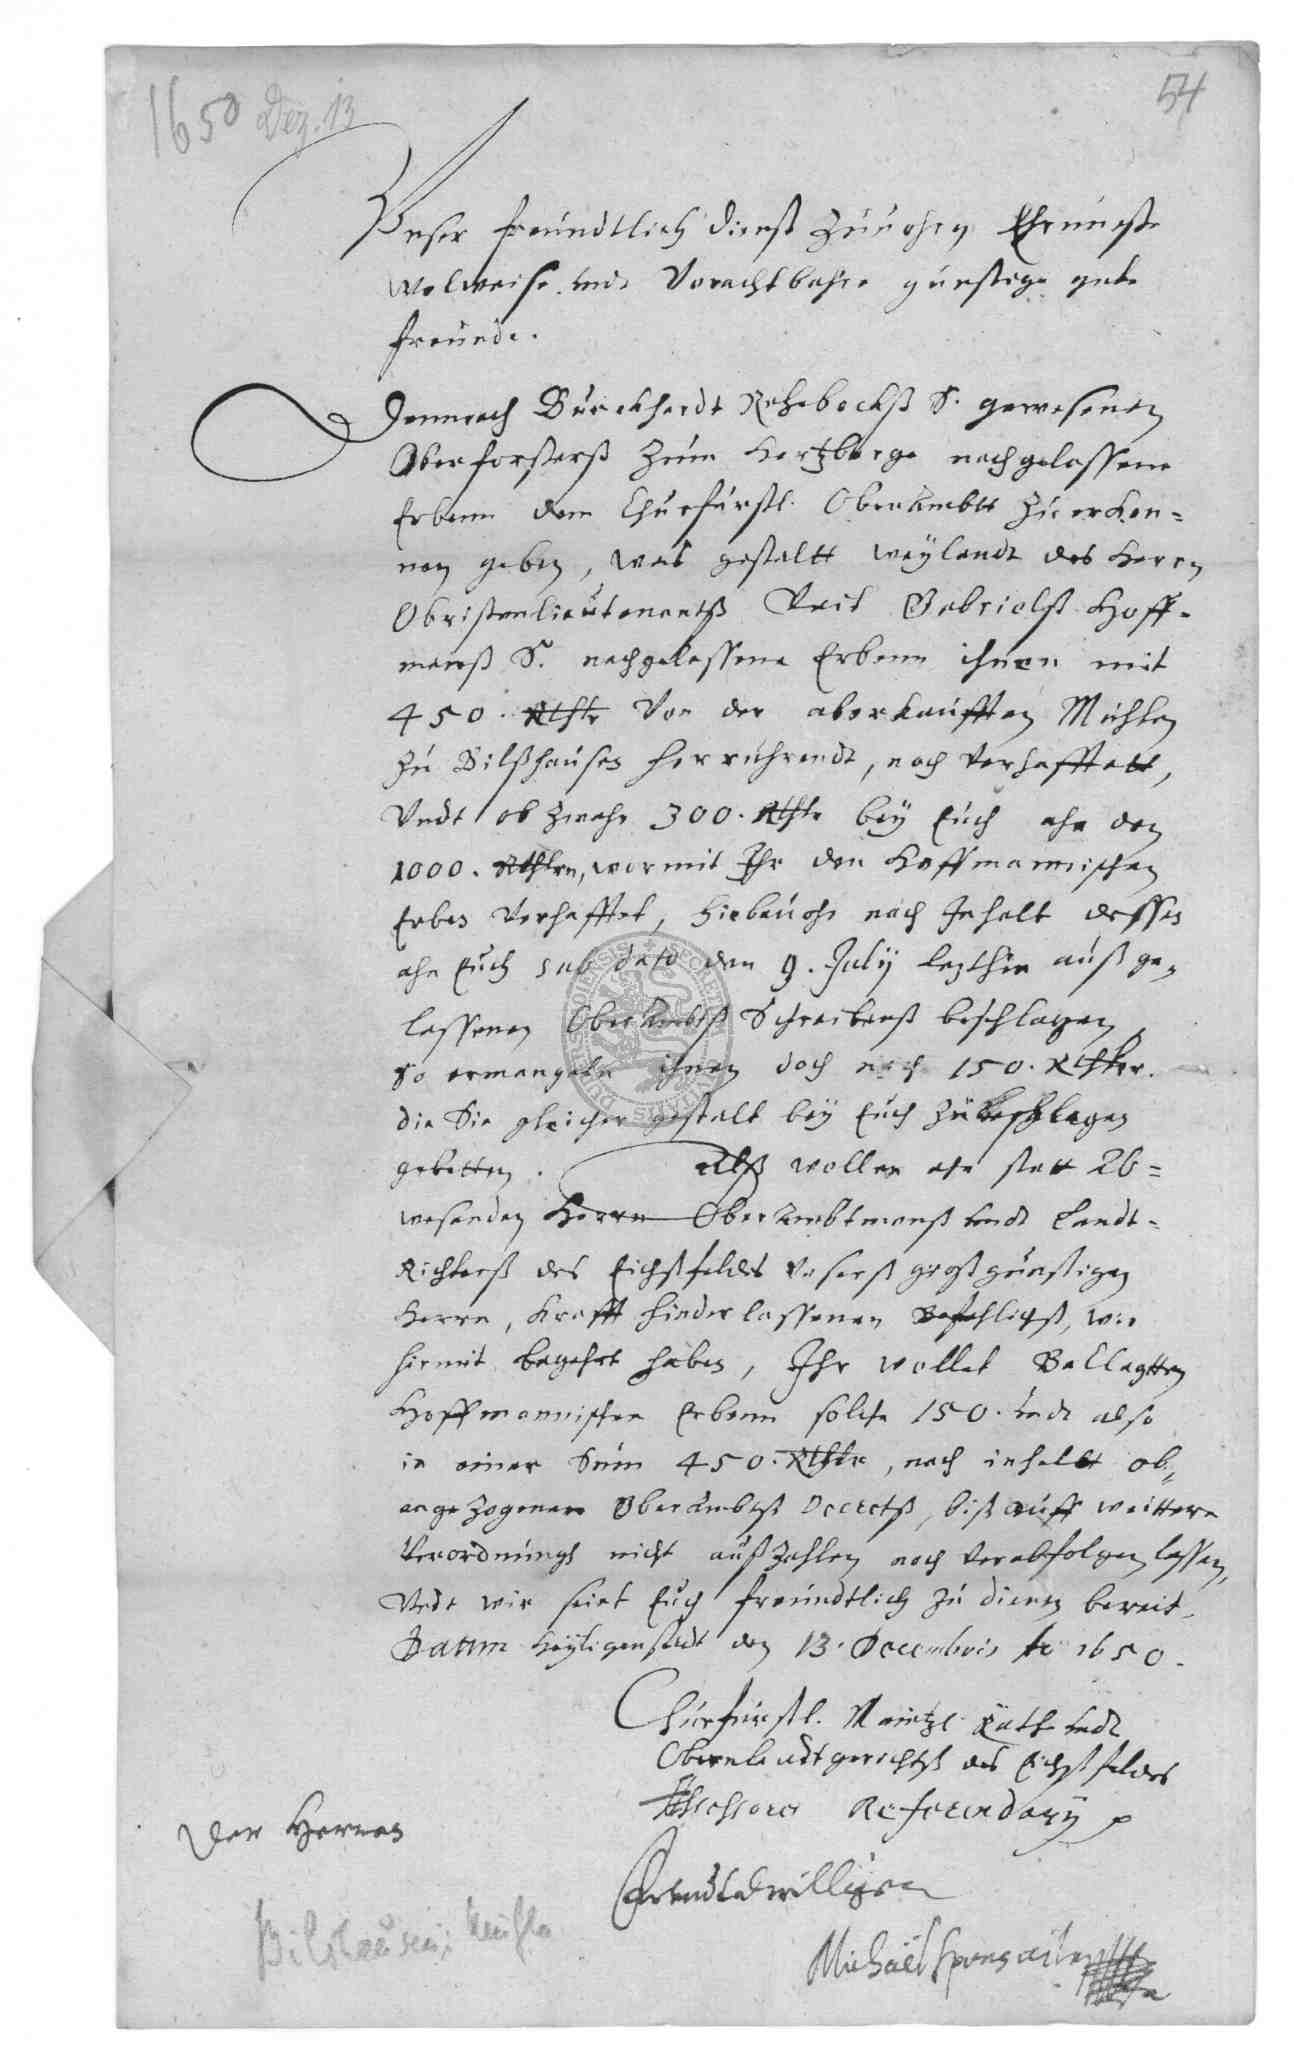 1650 Dez. 13
54
Unser freundtlich dienst zuuohrn Ehrnueste
Wolweise undt Vorachtbahre günstige gute
freunde.
Demnach Burckhardt Rehebockß S. gewesenen
Oberforsterß zum Hertzberge nachgelassene
Erbenn dem Churfürstl. Oberambtt zu erken=
nen geben, was gestaltt weÿlandt des Herrn
Obristenlieutenantß Veit Gabrielß Hoff=
manß S. nachgelassene Erbenn ihnen mit
450. Rthlr Von der aberkaufften Mühlen
zu Bilßhausen herrührendt, noch verhafftett,
Undt ob zwahr 300. Rthlr beÿ Euch ahn den
1000. Rthlrn, wormit Ihr den Hoffmannischen
Erben verhafftet, hiebeuohr nach Inhalt dessen
ahn Euch sub dato den 9. Julÿ letzthin außge=
lassenen OberAmbtß Schreibenß beschlagen,
So ermangeln ihnen doch noch 150. Rthler.
die Sie gleicher gestalt beÿ Euch zubeschlagen
gebetten. Alß wollen ahn statt Ab=
wesenden Herrn OberAmbtmanß undt Landt=
Richterß des Eichßfeldes Unserß großgünstigen
Herrn, Krafft hinderlassenen Befehligß, wir
hiemit begehrt haben, Ihr wollet
Hoffmannischen Erbenn solche 150. undt also
in einer Sum 450. Rthlr, nach inhaltt ob=
angezogenen OberAmbtß Decretß, biß auff weittere
Verordnungk nicht außzahlen noch verabfolgen lassen,
Undt wir seint Euch freundtlich zu dienen bereit.
Datum Heÿligenstadt den 13. Decembris 1650.
Churfürstl. Maintzl. Räthe undt
Oberlandtgerichtß des Eichßfeldes
Assessores Referendarÿ
Der Herren
Michaël
Bilshausen; Mühle